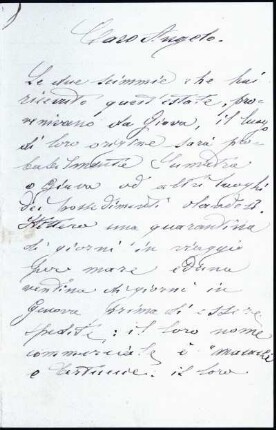 Caro Angelo.
Le due scimmie che hai
ricevuto quest'estate, pro-
venivano da Giava, il luogo
di loro origine sarà pro-
babilmente Sumatra
o Giava od altri luoghi
dei possedimenti olandesi.
una quarantina
di giorni in viaggio
per mare ed una
ventina di giorni in
Genova prima di essere
spedite; il loro nome
commerciale è "macachi
o il loro